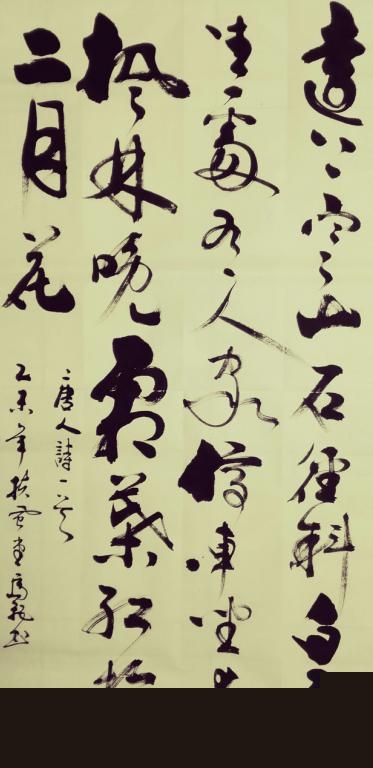 遠上寒山石徑斜白
生處有人家停車坐
楓林晚霜葉紅
二月花
唐人詩一首
乙未年扶